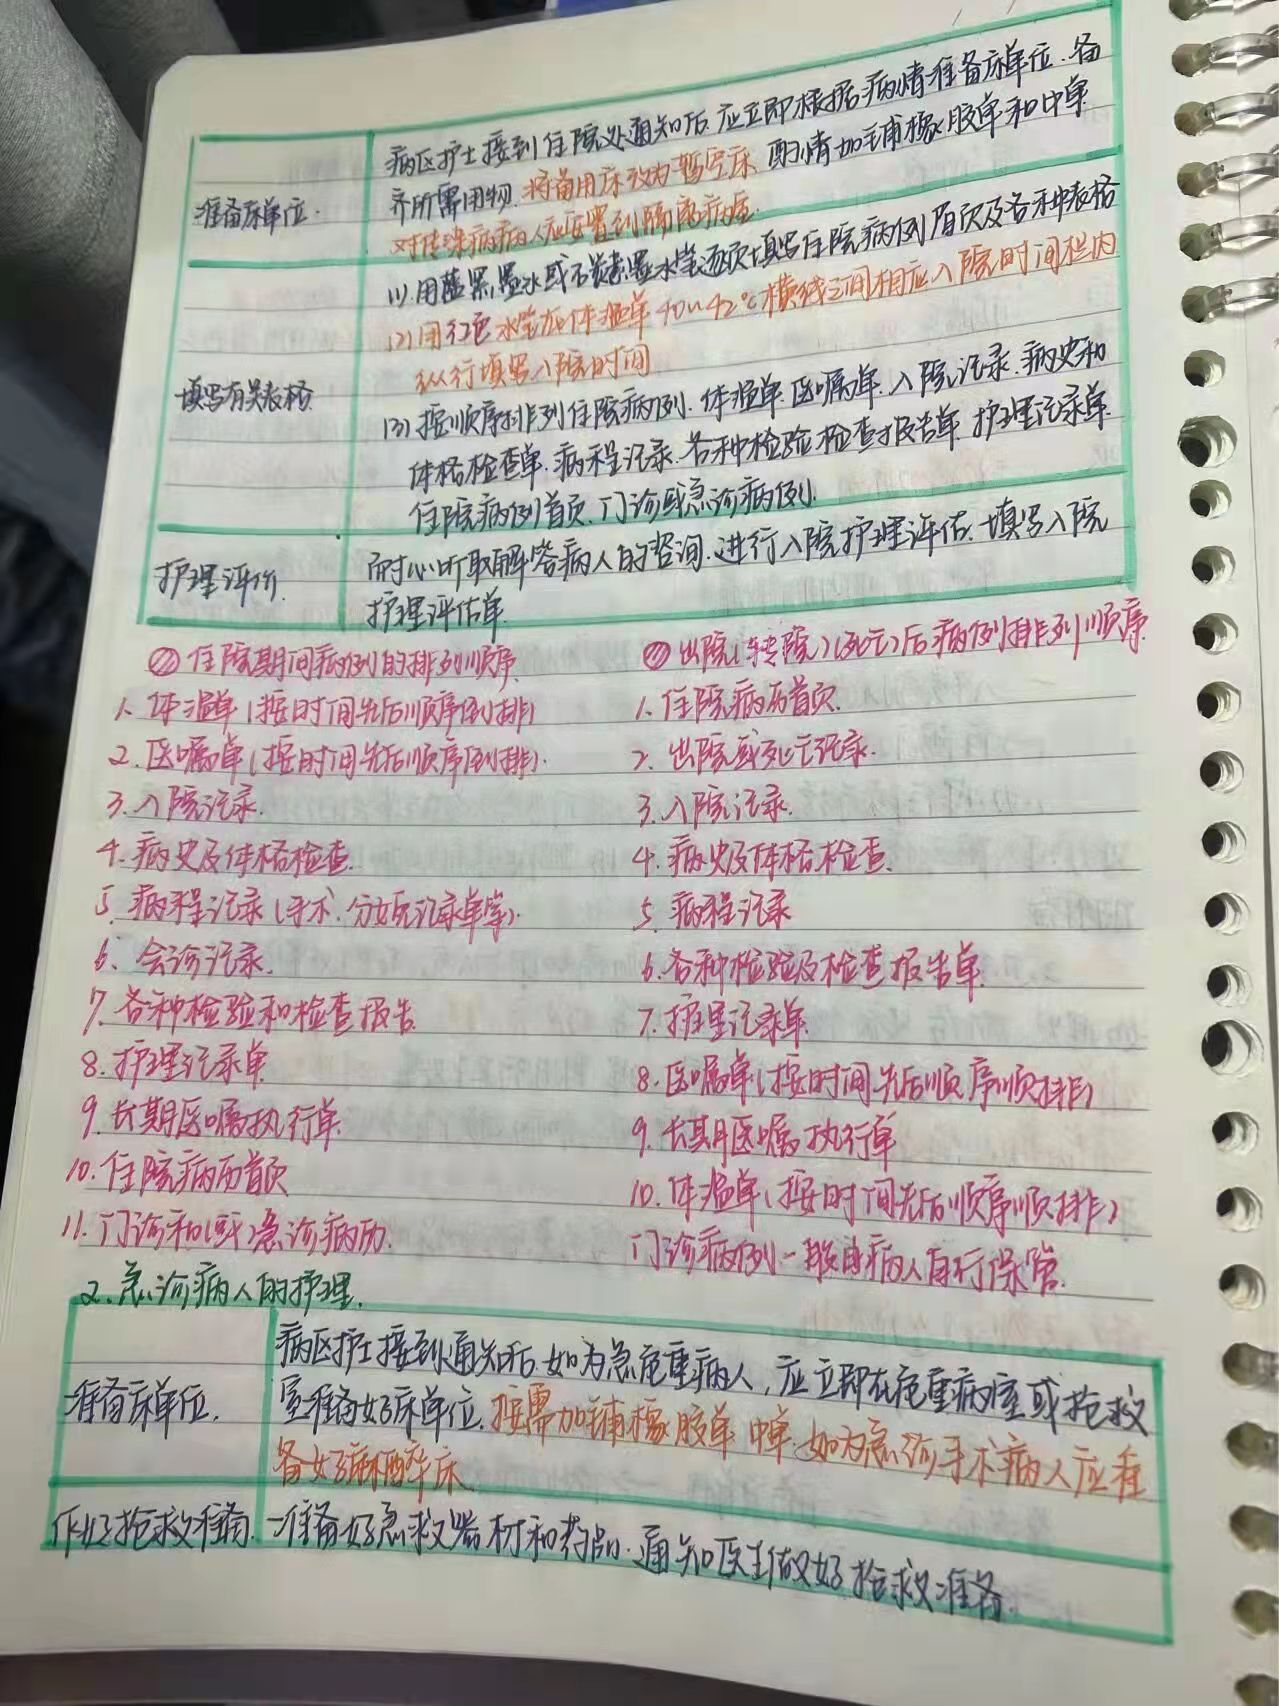 准备床单位.
病区护士接到住院处通知后.应立即根据病情准备床单位.备
齐所需用物.将备用床改为暂空床.酌情加铺橡胶单和中单
对传染病病人应安置到隔离病室.
填写有关表格
(1)用蓝黑墨水或不炭素墨水笔逐项填写住院病例眉页及各种表格
(2)用红色水笔在体温单40~42℃横线之间相应入院时间栏内
纵行填写入院时间
(3)按顺序排列住院病例.体温单.医嘱单.入院记录.病史和
体格检查单.病程记录.各种检验检查报告单.护理记录单.
住院病例首页.门诊或急诊病例.
护理评价.
耐心听取解答病人的咨询.进行入院护理评估.填写入院
护理评估单.
住院期间病例的排列顺序.
1.体温单(按时间先后顺序倒排)
2.医嘱单(按时间先后顺序倒排).
3.入院记录.
4.病史及体格检查.
5.病程记录(手术.分娩记录单等).
6、会诊记录.
7.各种检验和检查报告
8.护理记录单
9.长期医嘱执行单.
10.住院病历首页
11.门诊和(或)急诊病历.
出院(转院)(死亡)后病例排列顺序.
1.住院病历首页.
2.出院或死亡记录.
3.入院记录.
4.病史及体格检查.
5.病程记录
6.各种检验及检查报告单.
7.护理记录单.
8.医嘱单(按时间先后顺序顺排)
9.长期医嘱执行单
10.体温单(按时间先后顺序顺排)
门诊病例一般由病人自行保管.
2.急诊病人的护理.
准备床单位.
病区护士接到通知后.如为急危重病人,应立即在危重病室或抢救
室准备好床单位.按需加铺橡胶单.中单.如为急诊手术病人应在
备好麻醉床
作好抢救准备.
准备好急救器材和药品.通知医生做好抢救准备.